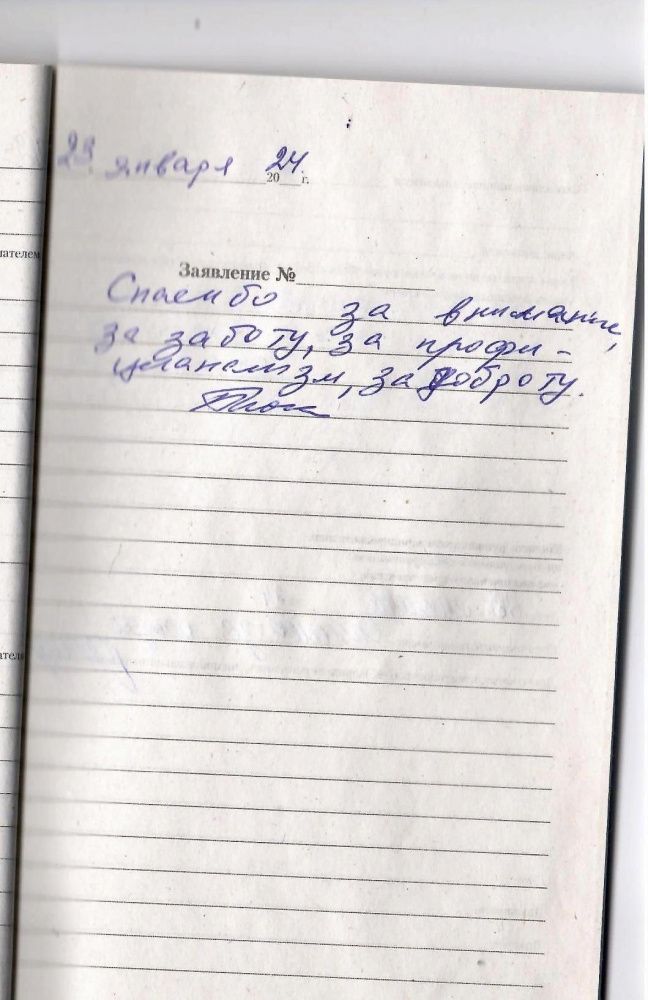 23 января 2024 г.
Заявление №
Спасибо за внимание,
за заботу, за профи-
цианализм, за доброту.